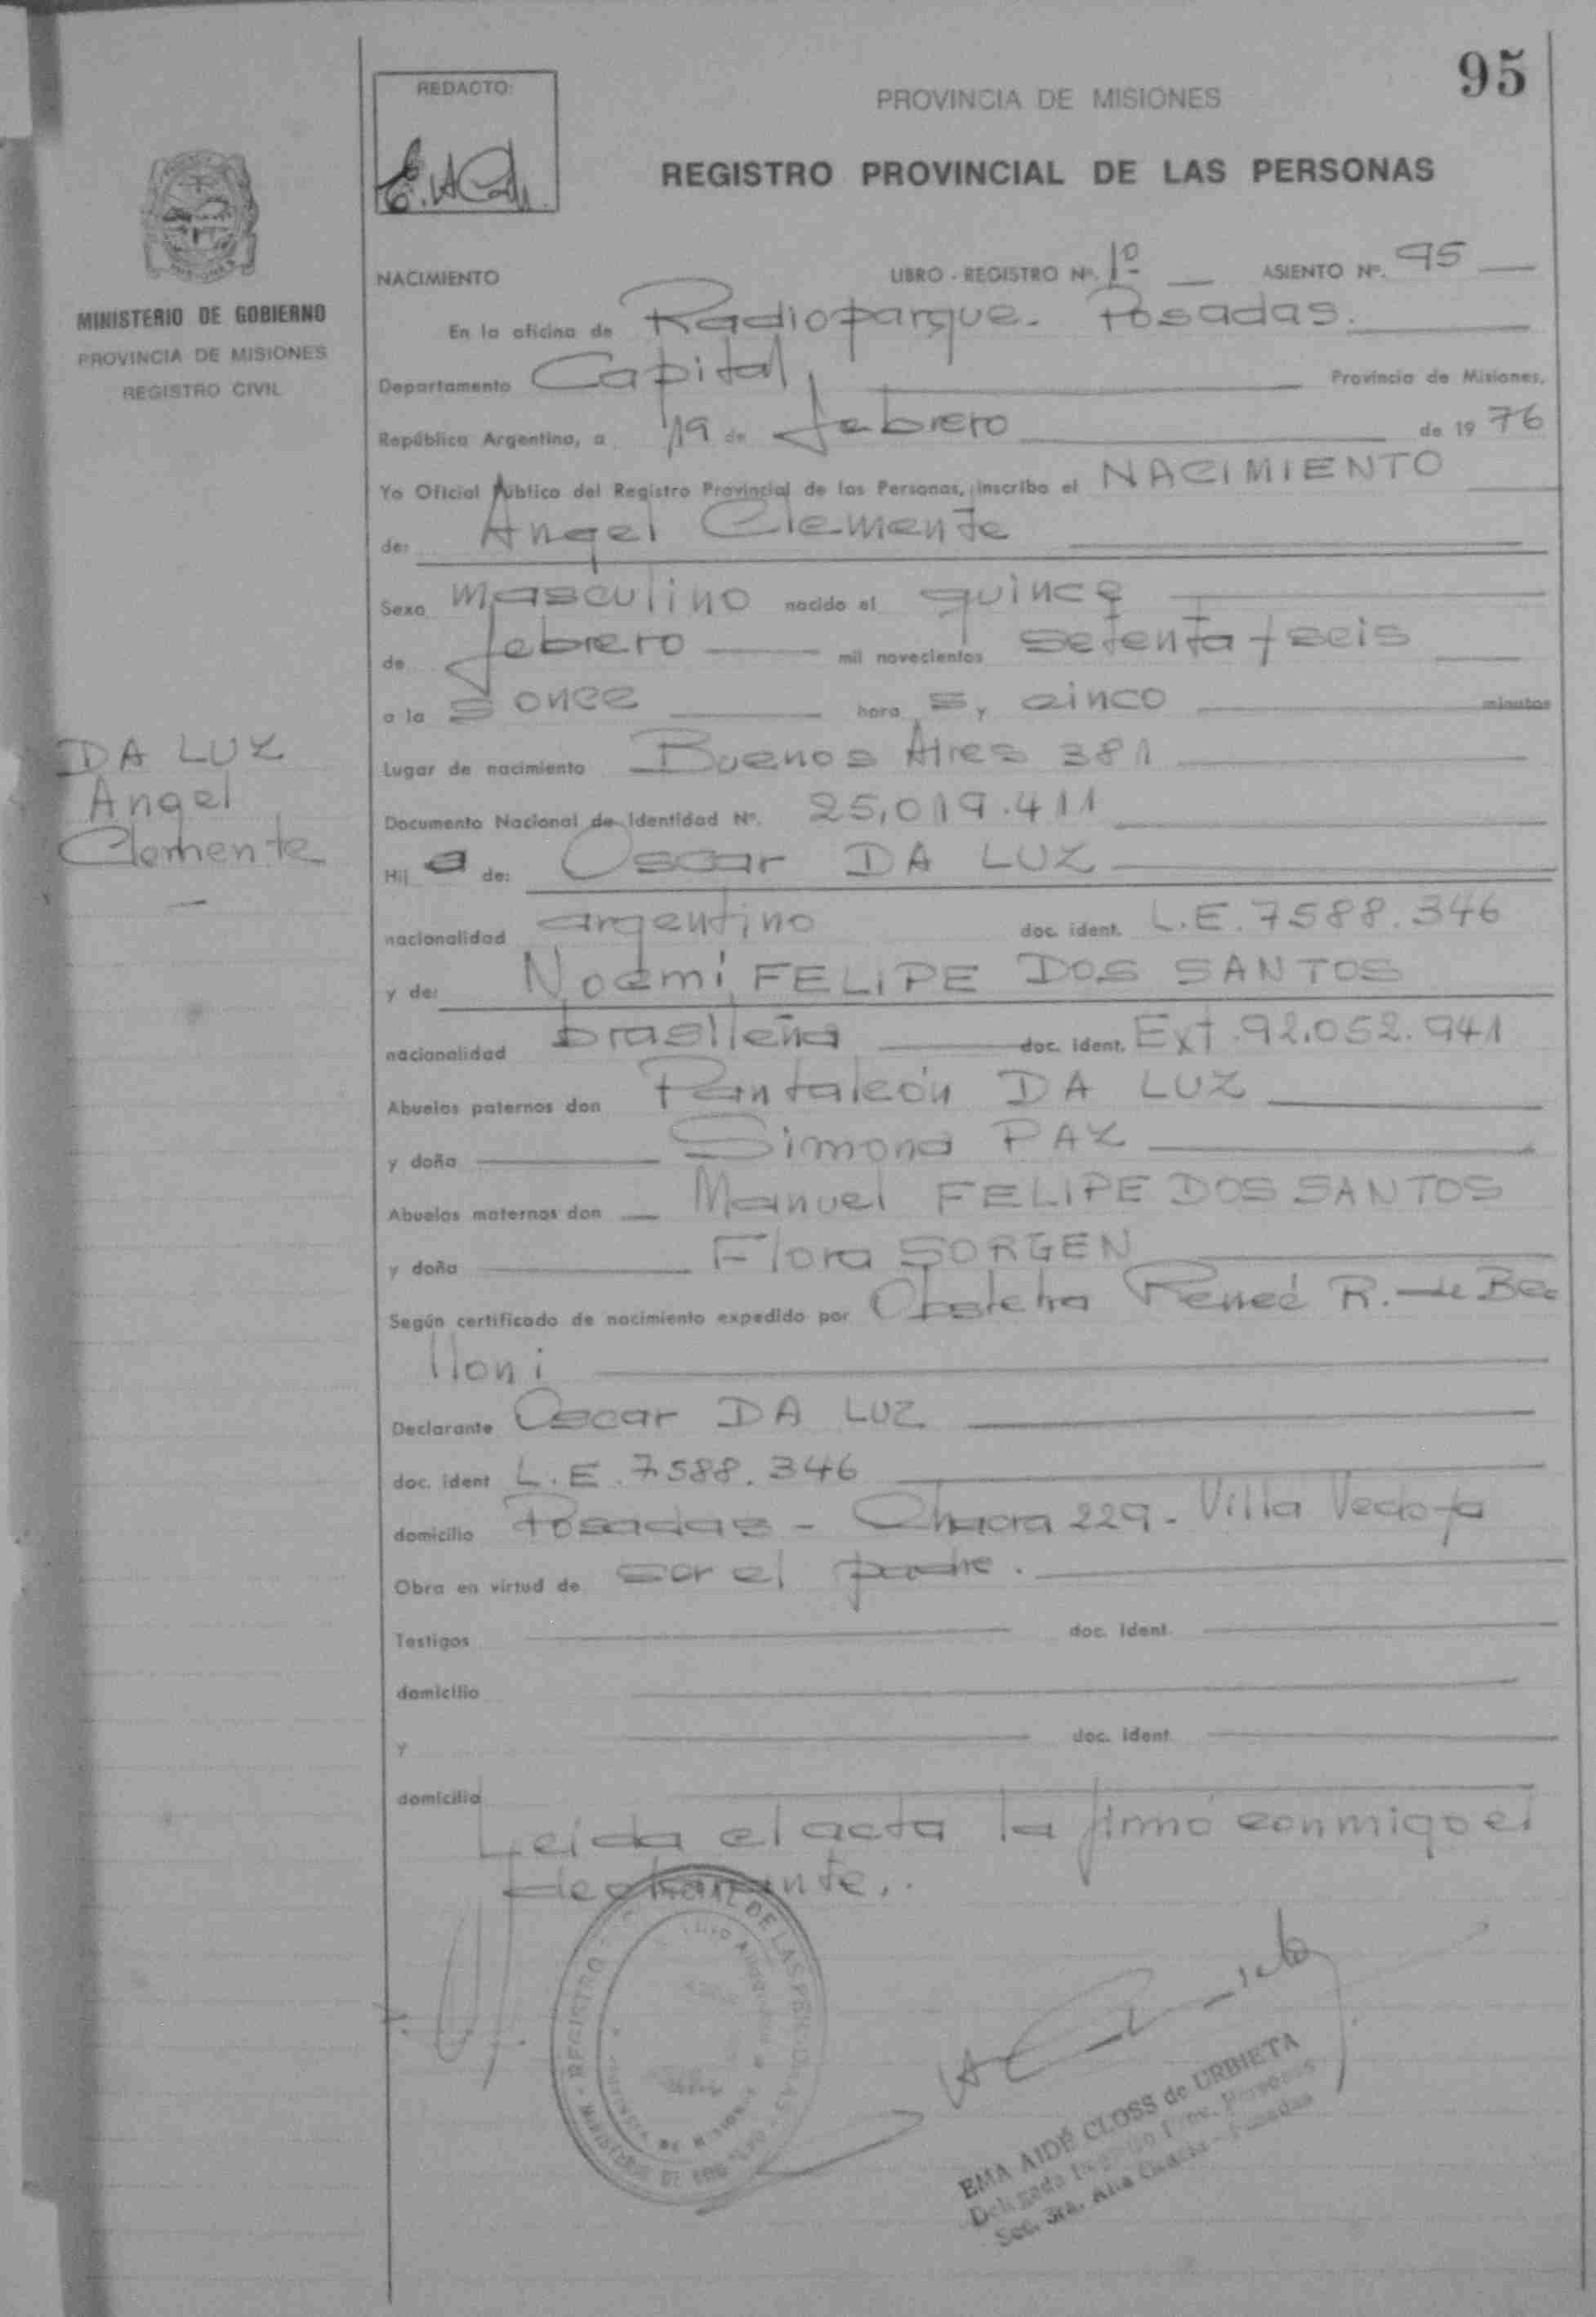 95
REDACTO:
PROVINCIA DE MISIONES
REGISTRO PROVINCIAL DE LAS PERSONAS
MINISTERIO DE GOBIERNO
PROVINCIA DE MISIONES
REGISTRO CIVIL
NACIMIENTO LIBRO - REGISTRO Nº. 1º ASIENTO Nº. 95
En la oficina de Radioparque - Posadas.
Departamento Capital, Provincia de Misiones,
República Argentina, a 19 de febrero de 1976
Yo Oficial Público del Registro Provincial de las Personas, inscribo el NACIMIENTO
de: Angel Clemente
Sexo masculino nacido el quince
de febrero mil novecientos setenta y seis
a las once horas y cinco minutos
DA LUZ
Angel
Clemente
Lugar de nacimiento Buenos Aires 381
Documento Nacional de Identidad Nº. 25.019.411
Hijo de: Oscar DA LUZ
nacionalidad argentino doc. ident. L.E. 7588.346
y de: Noemi FELIPE DOS SANTOS
nacionalidad brasileña doc. ident. Ext. 92.052.941
Abuelos paternos don Pantaleón DA LUZ
y doña Simona PAZ
Abuelos maternos don Manuel FELIPE DOS SANTOS
y doña Flora SORGEN
Según certificado de nacimiento expedido por Obstetra Reneé R. de Be
lloni
Declarante Oscar DA LUZ
doc. ident L.E. 7588.346
domicilio Posadas - Chacra 229 - Villa Vedoya
Obra en virtud de ser el padre.
Testigos doc. ident.
domicilio
y doc. ident
domicilio
Leída el acta la firmó conmigo el
declarante.
EMA AIDÉ CLOSS de URBIETA